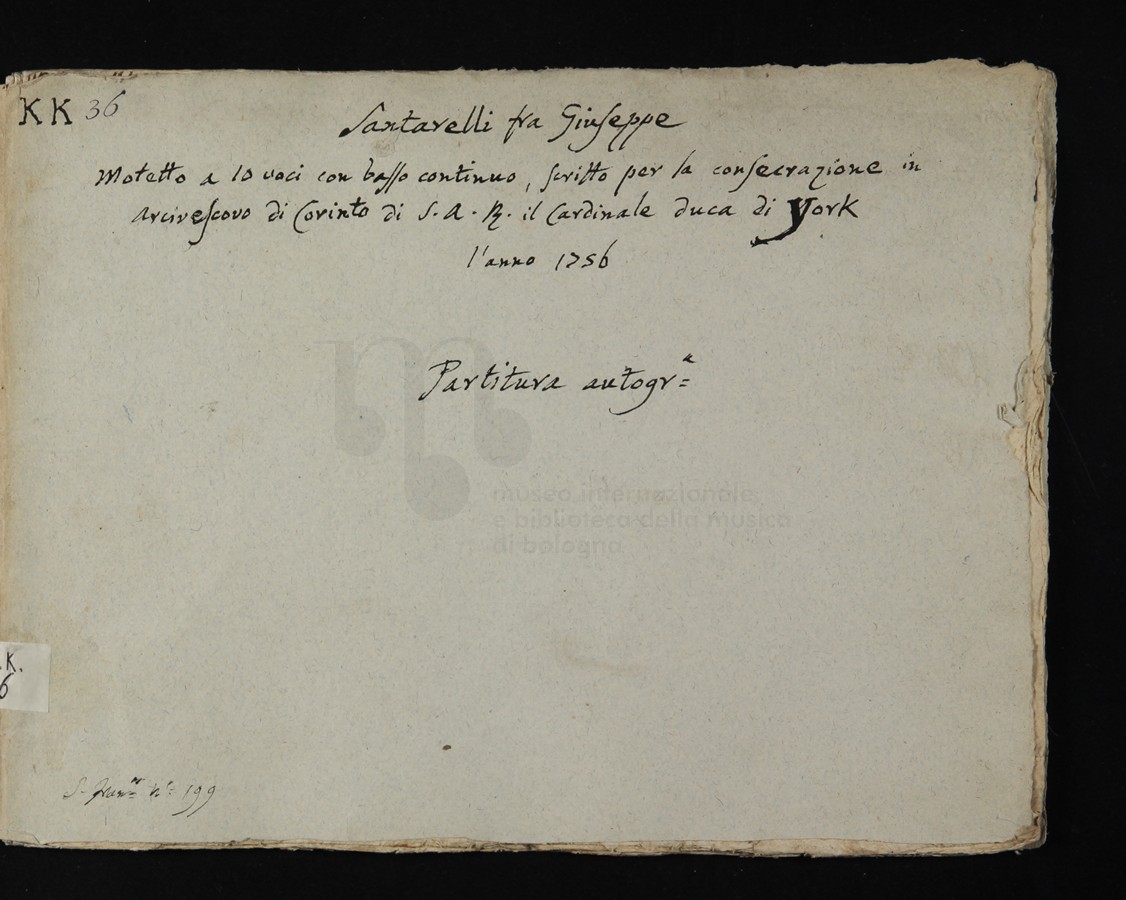 KK 36
Santarelli fra Giuseppe
Motetto a 10 voci con basso continuo, scritto per la consecrazione in
Arcivescovo di Corinto di S. A. R. il Cardinale Duca di York
l'anno 1756
Partitura autogr=ª
museo internazionale
e biblioteca della musica
di bologna
.K.
6
S. Fran= N.= 199